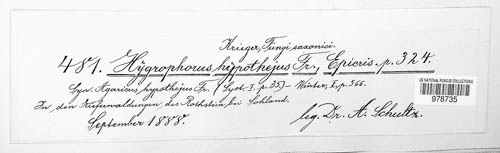 Krieger, Fungi saxonici.
481. Hygrophorus hypothejus Fr., Epicris. p. 324.
Syn. Agaricus hypothejus Fr. (Syst. I. p. 35) – Winter, I, p. 366.
In den Kiefernwaldungen des Rothstein bei Sohland.
September 1888. leg. Dr. A. Schultz.
US NATIONAL FUNGUS COLLECTIONS
978735